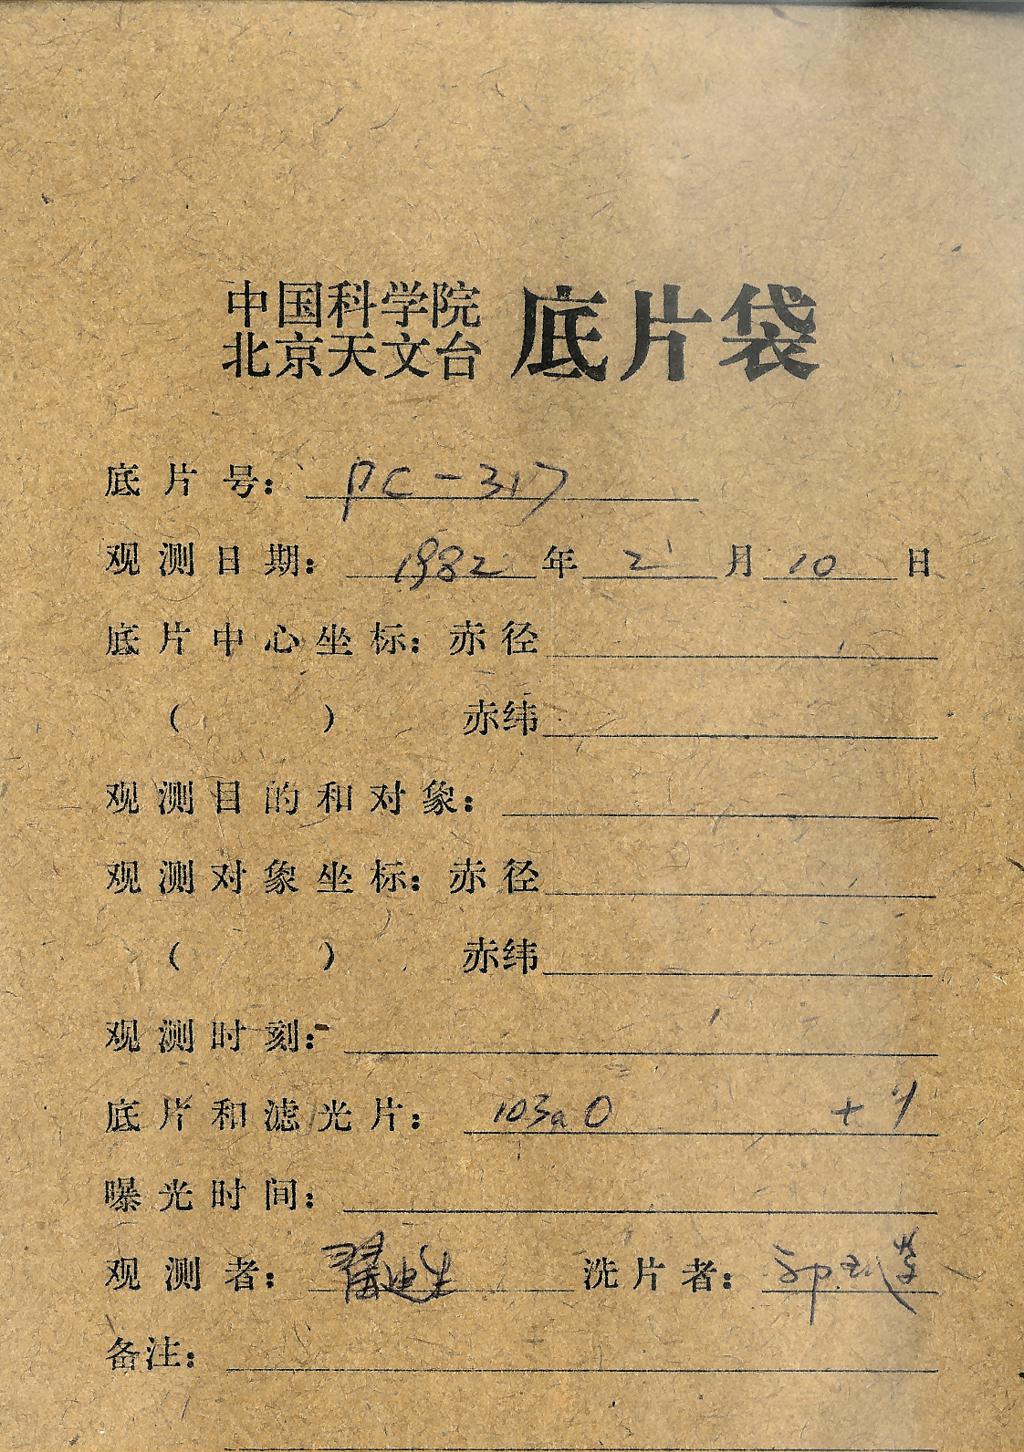 中国科学院
北京天文台
底片袋
底片号：PC-317
观测日期：1982年2月10日
底片中心坐标：赤径
（ ） 赤纬
观测目的和对象：
观测对象坐标：赤径
（ ） 赤纬
观测时刻：
底片和滤光片：103aO +
曝光时间：
观测者：翟迪生 洗片者：
备注：